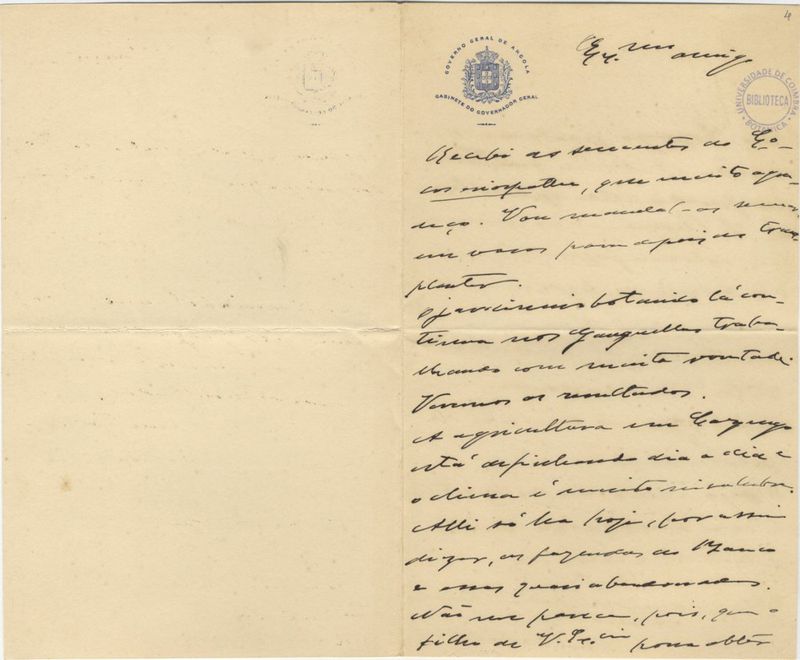 4
GOVERNO GERAL DE ANGOLA
GABINETE DO GOVERNADOR GERAL
Ex.mo amigo
UNIVERSIDADE DE COIMBRA
BIBLIOTECA
BOTANICA
Recebi as sementes do Co-
cos eriospatha, que muito agra-
deço. Vou mandal-as semear
em vasos para depois as trans-
plantar.
O jardineiro botanico lá con-
tinua nos Ganguellas traba-
lhando com muita vontade.
Veremos os resultados.
A agricultura em Cazengo
está definhando dia a dia e
o clima é muito insalubre.
Alli só ha hoje, por assim
dizer, as fazendas do Banco
e essas quasi abandonadas.
Não me parece, pois, que o
filho de V. Ex.cia possa obter